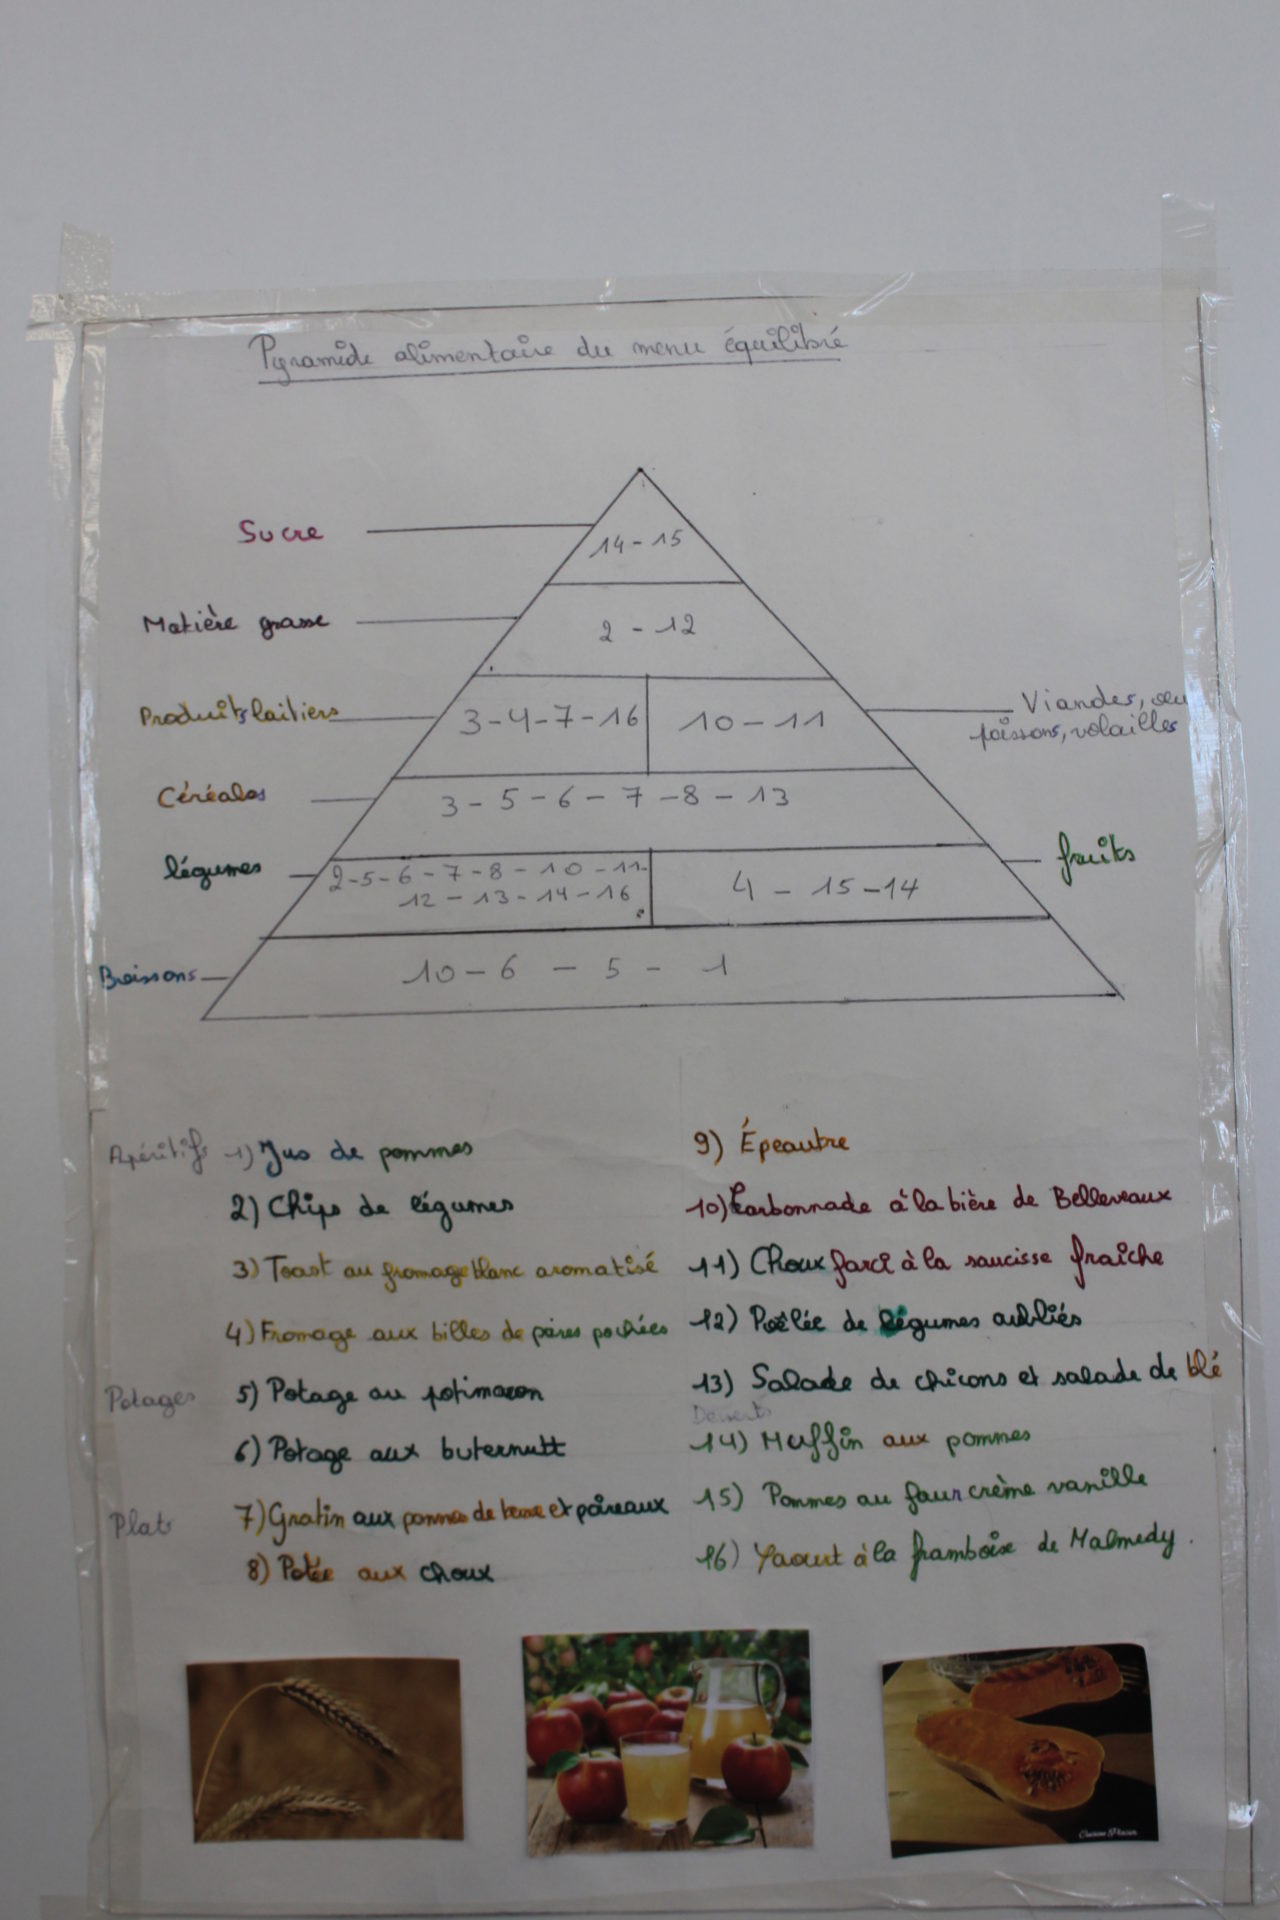 Pyramide alimentaire du menu équilibré
Sucre
14 - 15
Matière grasse
2 - 12
Produits laitiers
3-4-7-16
10-11
Viandes, œu
poissons, volailles
Céréales
3 - 5 - 6 - 7 - 8 - 13
légumes
2-5-6-7-8-10-11-
12-13-14-16
4 - 15 - 14
fruits
Boissons
10 - 6 - 5 - 1
Apéritifs 1) Jus de pommes
2) Chips de légumes
3) Toast au fromage blanc aromatisé
4) Fromage aux billes de poires pochées
Potages 5) Potage au potimaron
6) Potage aux buternutt
Plat 7) Gratin aux pommes de terre et poireaux
8) Potée aux choux
9) Épeautre
10) Carbonnade à la bière de Bellevaux
11) Choux farci à la saucisse fraîche
12) Poêlée de légumes oubliés
13) Salade de chicons et salade de blé
Desserts
14) Muffin aux pommes
15) Pommes au four crème vanille
16) Yaourt à la framboise de Malmedy.